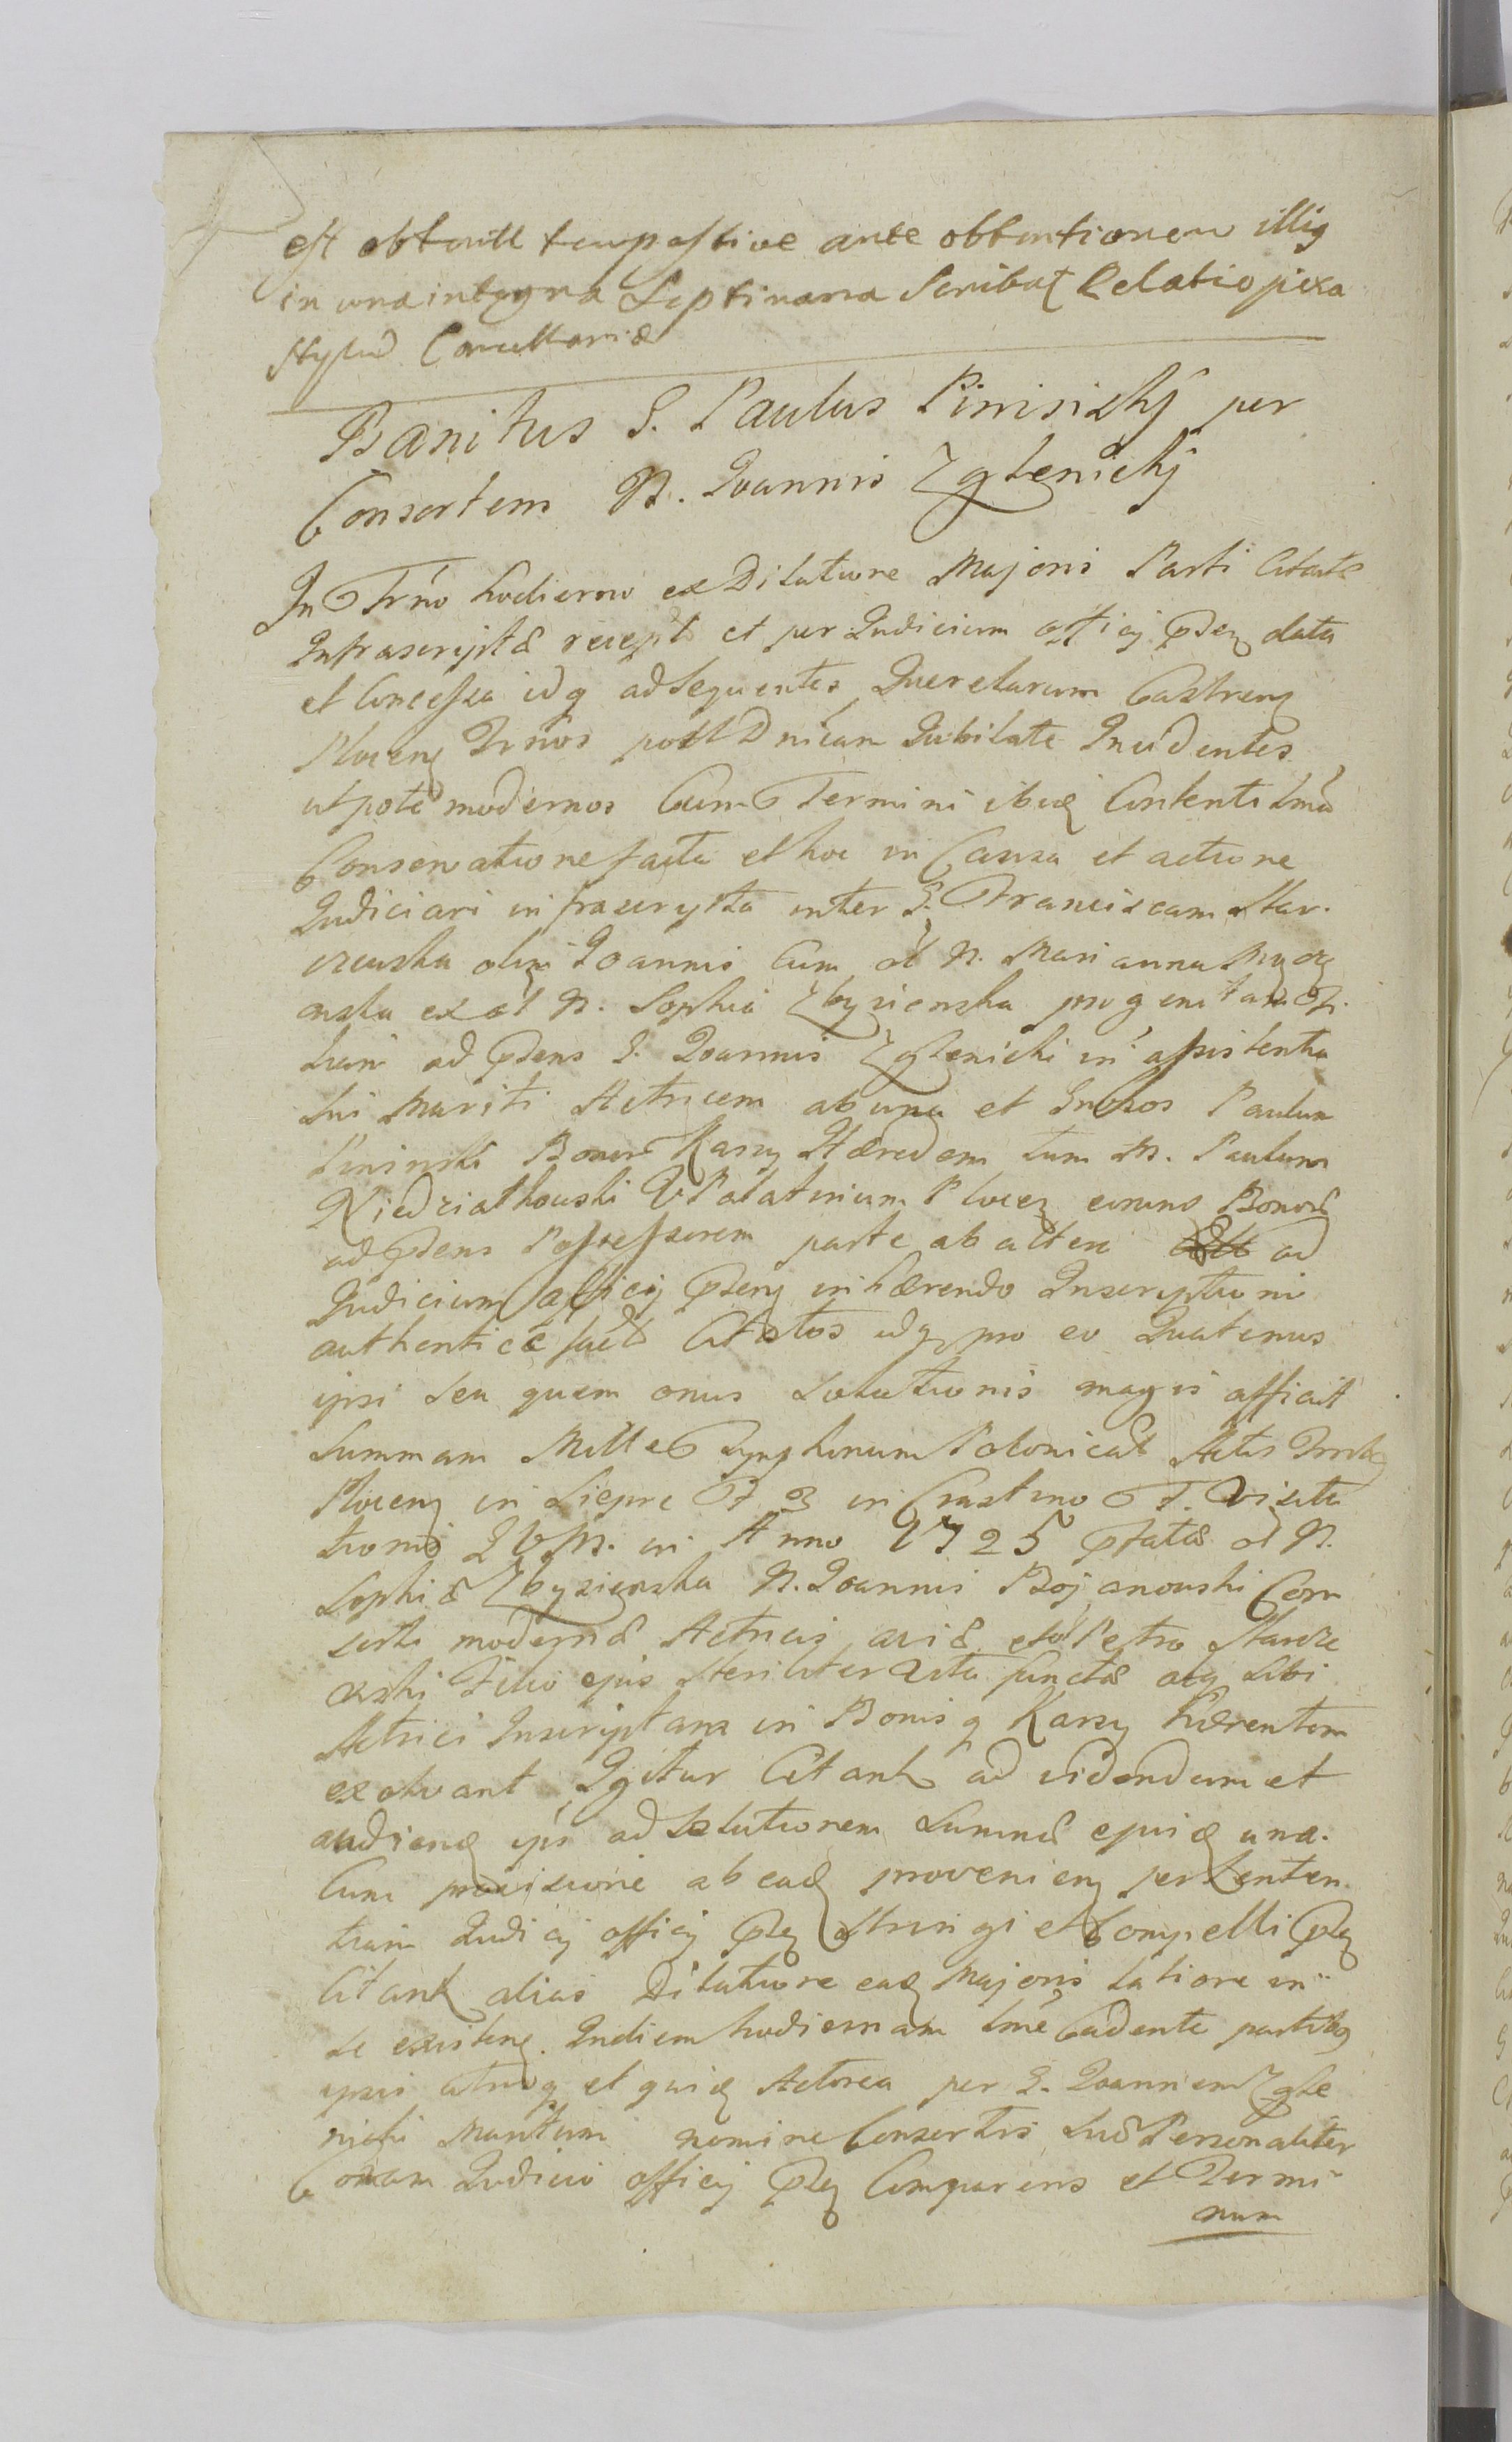 est obtenta tempestive ante obbtentionem illig
in una integra Septimana scribat Relatio pixa
stylud Cancellariæ
Banitus G. Paulus Pininski per
Consortem N. Joannis Zglenicki
In Trno hodierno ex Dilatione Majoris Parti Citatæ
Infrascriptæ recept et per Judicium officij pten data
et Concessa idq ad sequentes Querelarum Castren
Plocen Trnos post Dnicam Jubilate Incidentes
utpote modernos Cum Termini ibid Contenti lma
Conservatione facta et hoc in Causa et actione
Judiciari infrascripta inter G. Franciscam Star-
czewska olim Joannis Cum ol N. Marianna
anska ex ol N. Sophia Zbyzienska progenitam F.
tum ad ptens G. Joannis Zglenicki in assistentia
sui Mariti Actricem ab una et Gnosos Paulum
Pininski Bonor Karsy Hæredem tum M. Paulum
Niedzialkowski V Palatinum Plocen eorund Bonor
ad ptens Possessorem parte ab altera ad
Judicium officij pten inhærendo Inscriptioni
authenticæ factæ Citatos idq pro eo Quatenus
ipsi seu quem onus solutionis magis afficit
Summam Mille Tynphonum Polonical Actis Trrlb
Plocen in Sierpc F. 3 in Crastino F. Visita
tionis BVM. in Anno 1725 ptatæ ol N.
Sophiæ Zbyzienska N. Joannis Bojanowski Con
sortis modernæ Actricis aviæ et ol Petro Starcze
wski Filio ejus steriliter functæ atq sibi
Actrici Inscriptam in Bonisq Karsy hærentem
exolvant Igitur Citant ad videndum et
audiend ipsi ad solutionem Summæ ejusd una
Cum provisione ab ead provenien per Senten
tiam Judicij officij pten Stringi et Compelli pten
Citant alias Dilatione ead Majoris latiore in
se existen. Indiem hodiernam lme Cadente partibg
ipsis utrinq et quid Actorea per G. Joannem Zgle
nicki Maritum nomine Consortis suæ Personaliter
Coram Judicio officij pten Comparens et Termi-
num